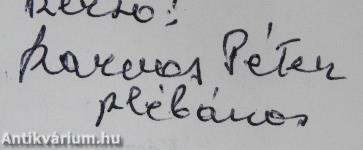 Karvas Péter
plébános
Antikvárium.hu